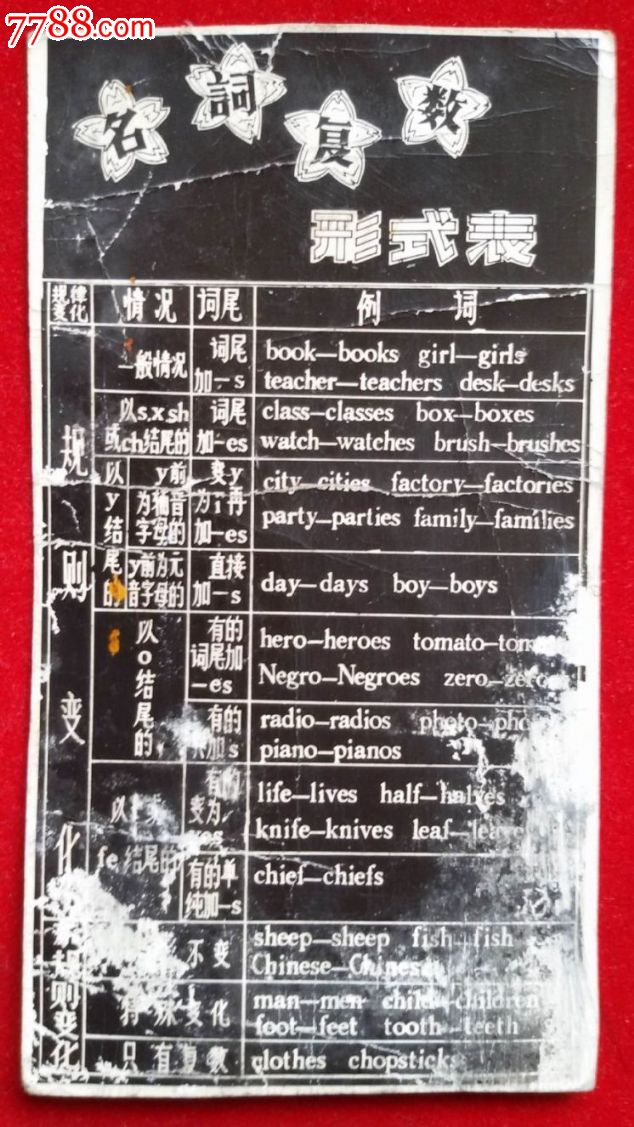 7788.com
名詞复数
形式表
规律变化 情况 词尾 例词
规则变化
一般情况 词尾加—s
book—books girl—girls
teacher—teachers desk—desks
以s,x,sh或ch结尾的 词尾加—es
class—classes box—boxes
watch—watches brush—brushes
以y结尾的
y前为辅音字母的 变y为i再加—es
city—cities factory—factories
party—parties family—families
y前为元音字母的 直接加—s
day—days boy—boys
以o结尾的
有的词尾加—es
hero—heroes tomato—
Negro—Negroes zero—
有的加s
radio—radios photo—
piano—pianos
以 fe结尾的
有的变为ves
life—lives half—halves
knife—knives leaf—
有的单纯加—s
chief—chiefs
规则变化
不变
sheep—sheep fish—fish
Chinese—Chinese
特殊变化
man—men child—children
foot—feet tooth—teeth
只有复数
clothes chopsticks